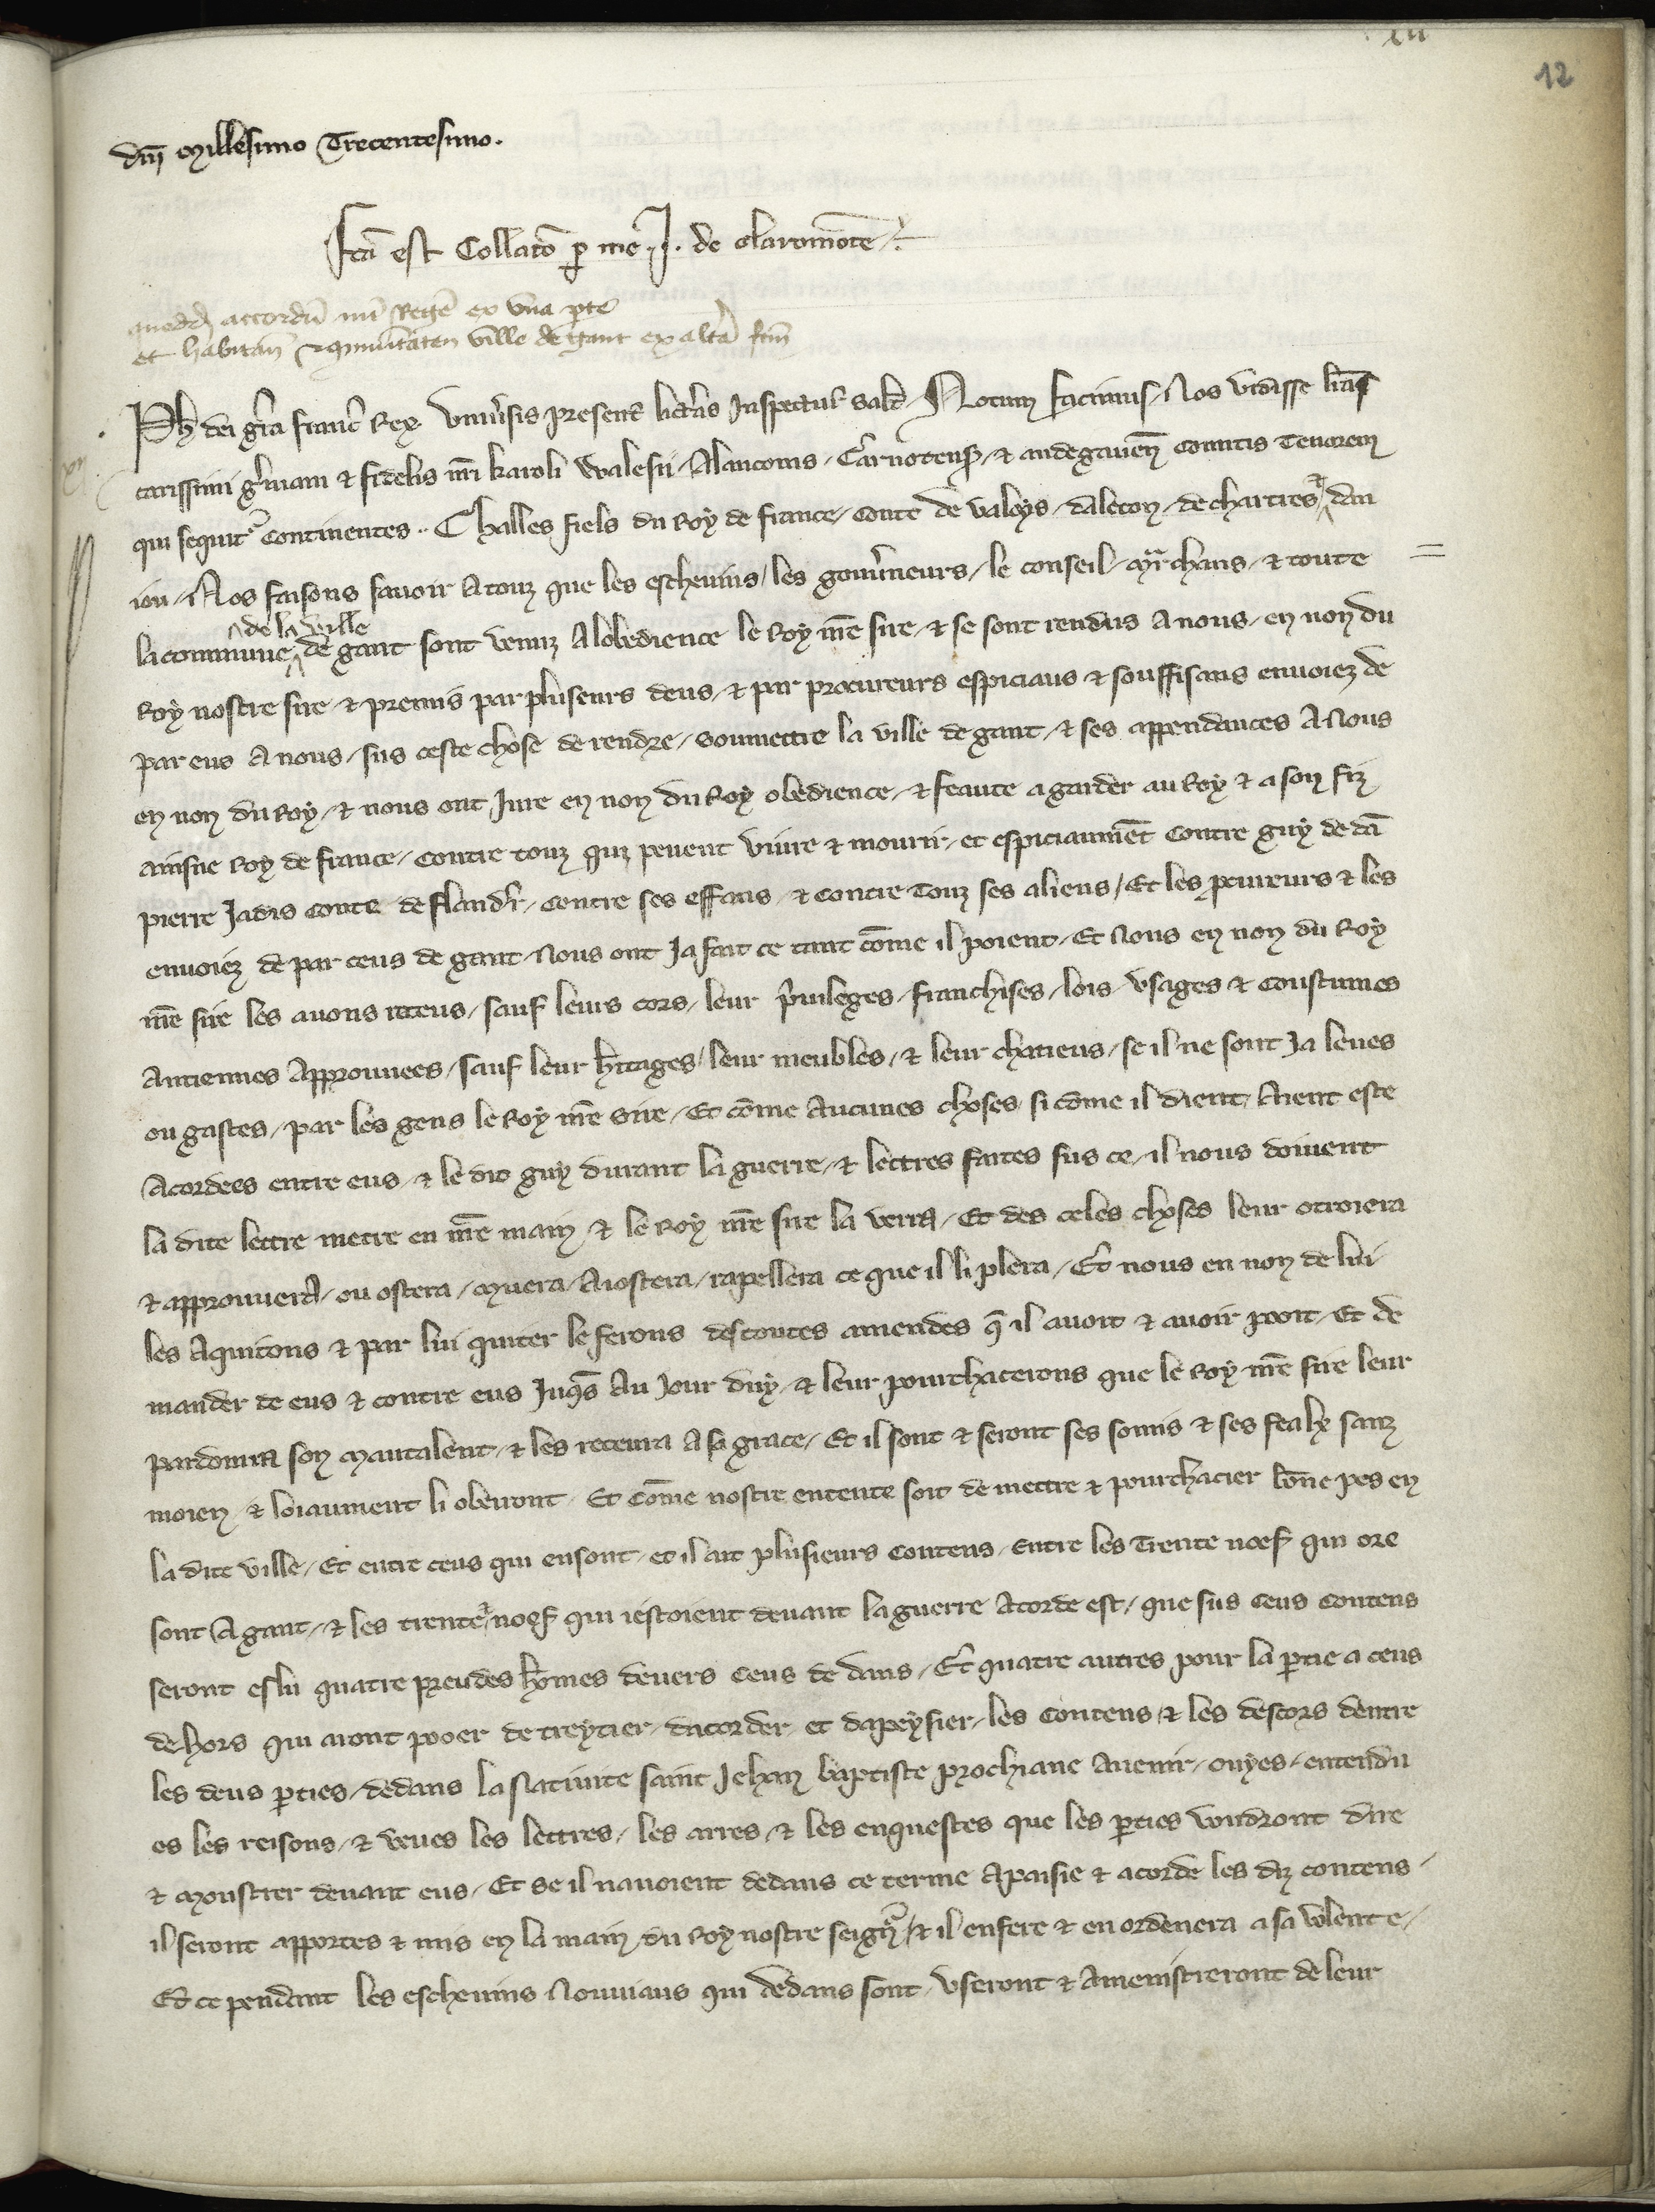 xii
12
dnī Millesimo Trecentesimo.
Itā est Collatō p me .J. de claromōte
quoddā accordū int̄ Regē ex vna pte
et habitan̄ & cōmunitatem ville de gant ex altā fcm̄
Ph dei gr̄a franc̄ Rex Vniuīsis presentes litt̄as Inspectur̄ salt̄ Notum facimus Nos vidisse lrās
carissimi gīmani & fidelis nr̄i karoli Valesii Alanconis Carnotens̄ & andegauen̄ Comitis Tenorem
qui sequit̄ continentes. Challes fiels du Roy de france Conte de valoys dalecon de chartres & dan
iou Nos faisons sauoir A touz que les escheuins les gouūneurs le conseil mar̄chans & toute
la commune de la ville de gant sont venuz A lobedience le Roy nr̄e sire & se sont rendus a nous en non du
Roy nostre sire & premis par pluseurs deus & par procureurs espiciaus & souffisans enuoiez de
par eus a nous sus ceste chose de rendre soumettre la ville de gant & ses appendances A Nous
en non du Roy & nous ont Jure en non du Roy obedience & feaute a garder au Roy & a son fiz
ainsne Roy de france contre touz qui peuent viure & mourir et espiciaumēt Contre guy de dā
pierre Jadis Conte de flandr̄ contre ses effans & contre Touz ses aliens Et les pcureurs & les
enuoiez de par ceus de gant Nous ont Ja fait ce tant cōme il poient Et Nous en non du Roy
nr̄e sire les auons receus sauf leurs cors leur p̄uileges franchises lois vsages & Coustumes
Anciennes Approuuees sauf leur hr̄itages leur meubles & leur chatieus se il ne sont Ja leues
ou gastes par les gens le Roy nr̄e Sire Et cōme Aucunes choses si cōme il dient Aient este
Acordees entre eus & le dit guy durant la guerre & lettres faites sus ce il nous doiuent
la dite lettre metre en nr̄e main & le Roy nr̄e sire la verra Et des celes choses leur otroiera
& approuuera ou ostera Muera Aiostera rapellera ce que il li plera Et nous en non de lui
les Aquitons & par lui quiter le ferons des toutes amendes q̄ il auoit & auoir poit Et de
mander de eus & contre eus Juqs̄ Au Jour duy & leur pourchacerons que le Roy nr̄e sire leur
pardonra son Mautalent & les receura A sa grace Et il sont & seront ses soumis & ses fealx sanz
moien & loiaument li obeiront Et Cōme nostre entente soit de mettre & pourchacier bōne pes en
la dite ville Et entre ceus qui ensont et il ait plusieurs Contens Entre les Trente noef qui ore
sont A gant & les trente & noef qui iestoient deuant la guerre Acorde est que sus Ceus Contens
seront eslu quatre preudes hōmes deuers Ceus de dans Et quatre autres pour la ptie a ceus
dehors qui aront pooer de treytier dacorder et dapeysier les Contens & les descors dentre
les deus pties dedans la Natiuite saint Jehan baptiste prochiane Auenir ouyes entendu
es les reisons & veues les lettres les arres & les enquestes que les pties voudront dire
& Moustrer deuant eus Et se il nauoient dedans ce terme Apaisie & acorde les diz contens
il seront apportes & mis en la main du Roy nostre seign̄r & il enfere & en ordenera a sa volente
Et ce pendant les escheuins Nouuiaus qui dedans sont vseront & Amenistreront de leur